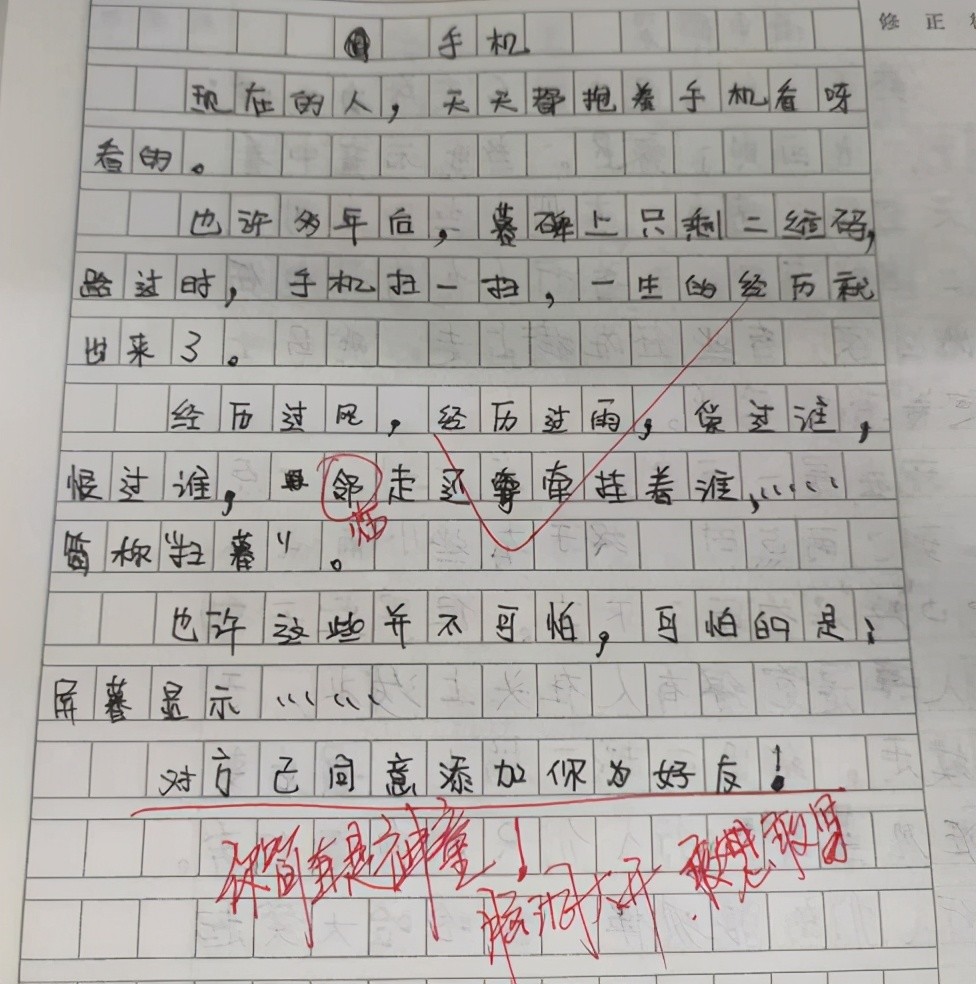 修正
手机
现在的人，天天都抱着手机看呀
看的。
也许多年后，暮碑上只剩二维码，
路过时，手机扫一扫，一生的经历就
出来了。
经历过风，经历过雨，爱过谁，
恨过谁，邻走还牵挂着谁，……
临
简称“扫暮”。
也许这些并不可怕，可怕的是：
屏暮显示……
对方已同意添加你为好友！
你简直是神童！
脑洞大开 敢想敢写